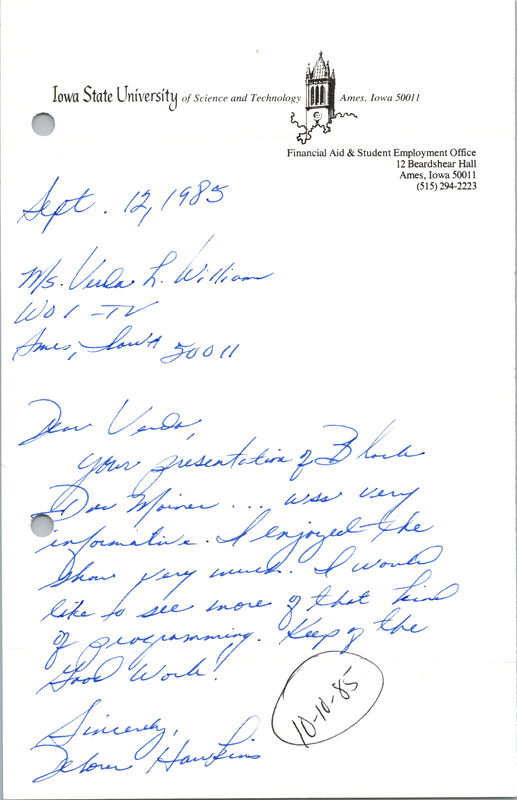 Iowa State University of Science and Technology Ames, Iowa 50011
Financial Aid & Student Employment Office
12 Beardshear Hall
Ames, Iowa 50011
(515) 294-2223
Sept. 12, 1985
Ms. Verda L. William
WOI-TV
Ames, Iowa 50011
Dear Verda,
Your presentation of Black
Des Moines ... was very
informative. I enjoyed the
show very much. I would
like to see more of that kind
of programming. Keep of the
Good Work!
Sincerely,
Delores Hawkins
10-10-85